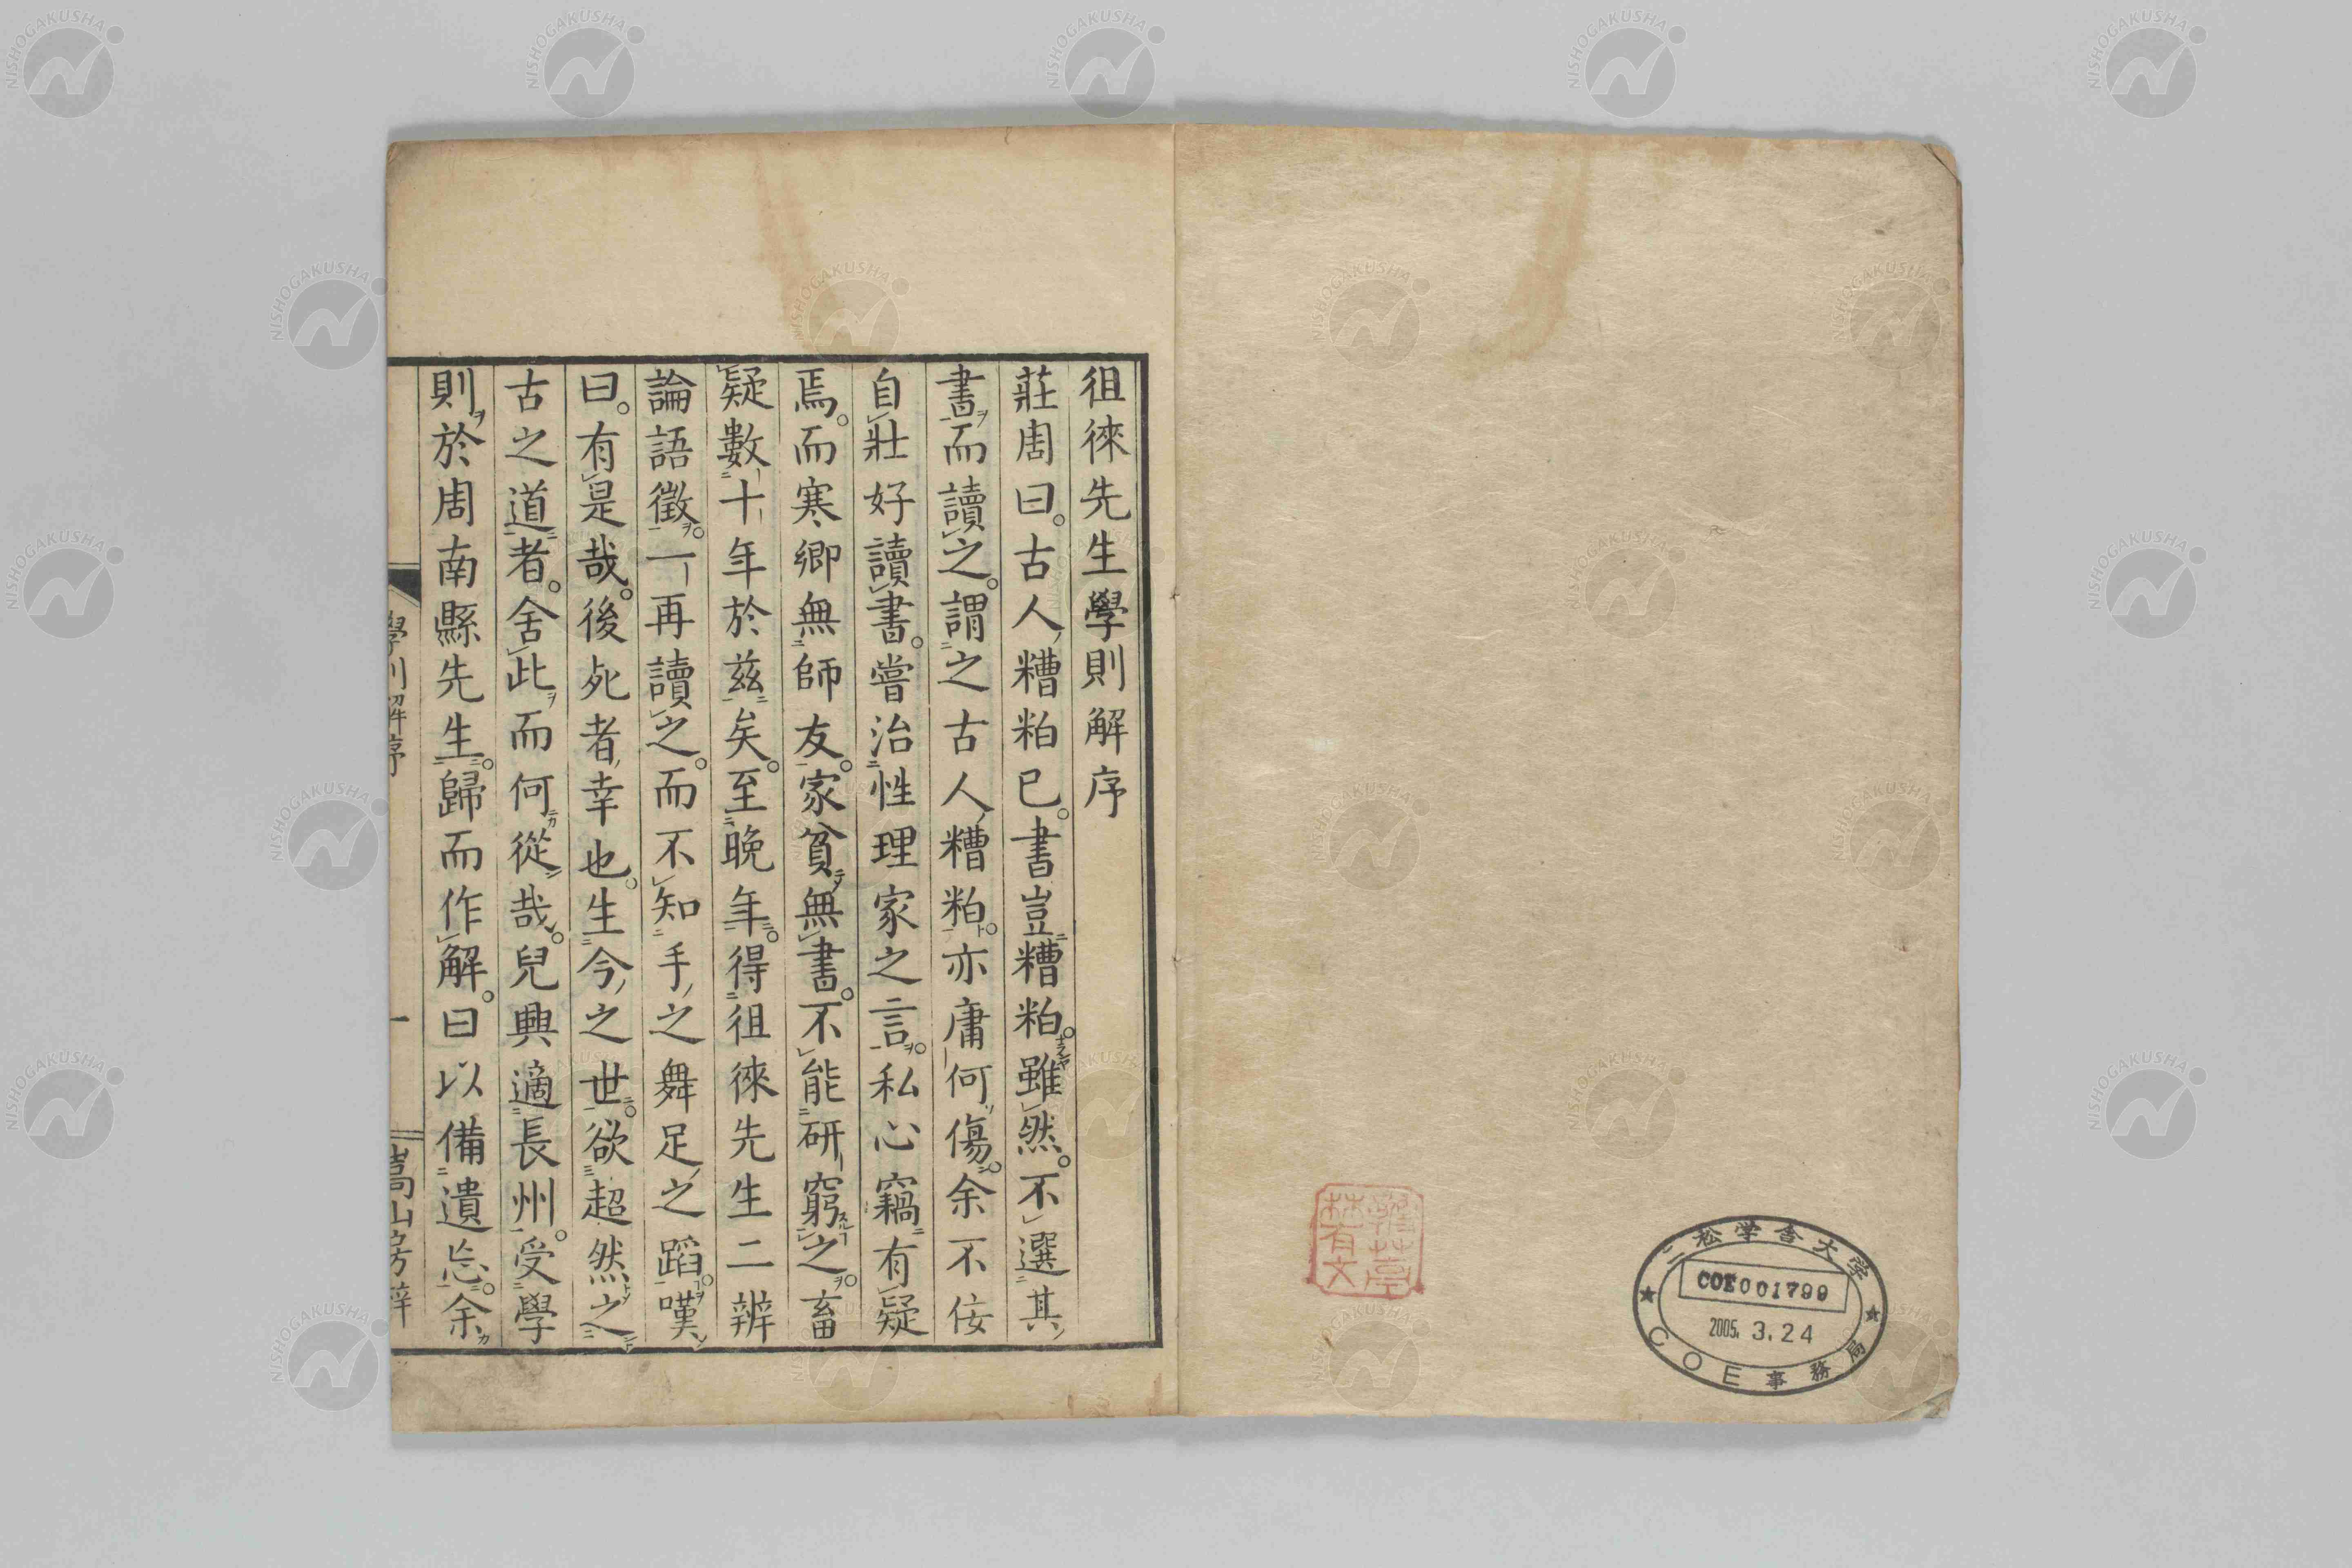 徂徠先生學則解序
莊周曰。古人糟粕已。書豈糟粕。雖然。不選其
書而讀之。謂之古人糟粕。亦庸何傷。余不佞
自壯好讀書。嘗治性理家之言。私心竊有疑
焉。而寒卿無師友。家貧無書。不能研窮之。畜
疑數十年於兹矣。至晚年。得徂徠先生二辨
論語徵。一再讀之。而不知手之舞足之蹈。嘆
曰。有是哉。後死者幸也。生今之世。欲超然之
古之道者。舍此而何從哉。兒興適長州。受學
則於周南縣先生。歸而作解。曰以備遺忘。余
學則解序
一
嵩山房梓
二松学舎大学
COE001799
2005.3.24
COE事務局
NISHOGAKUSHA